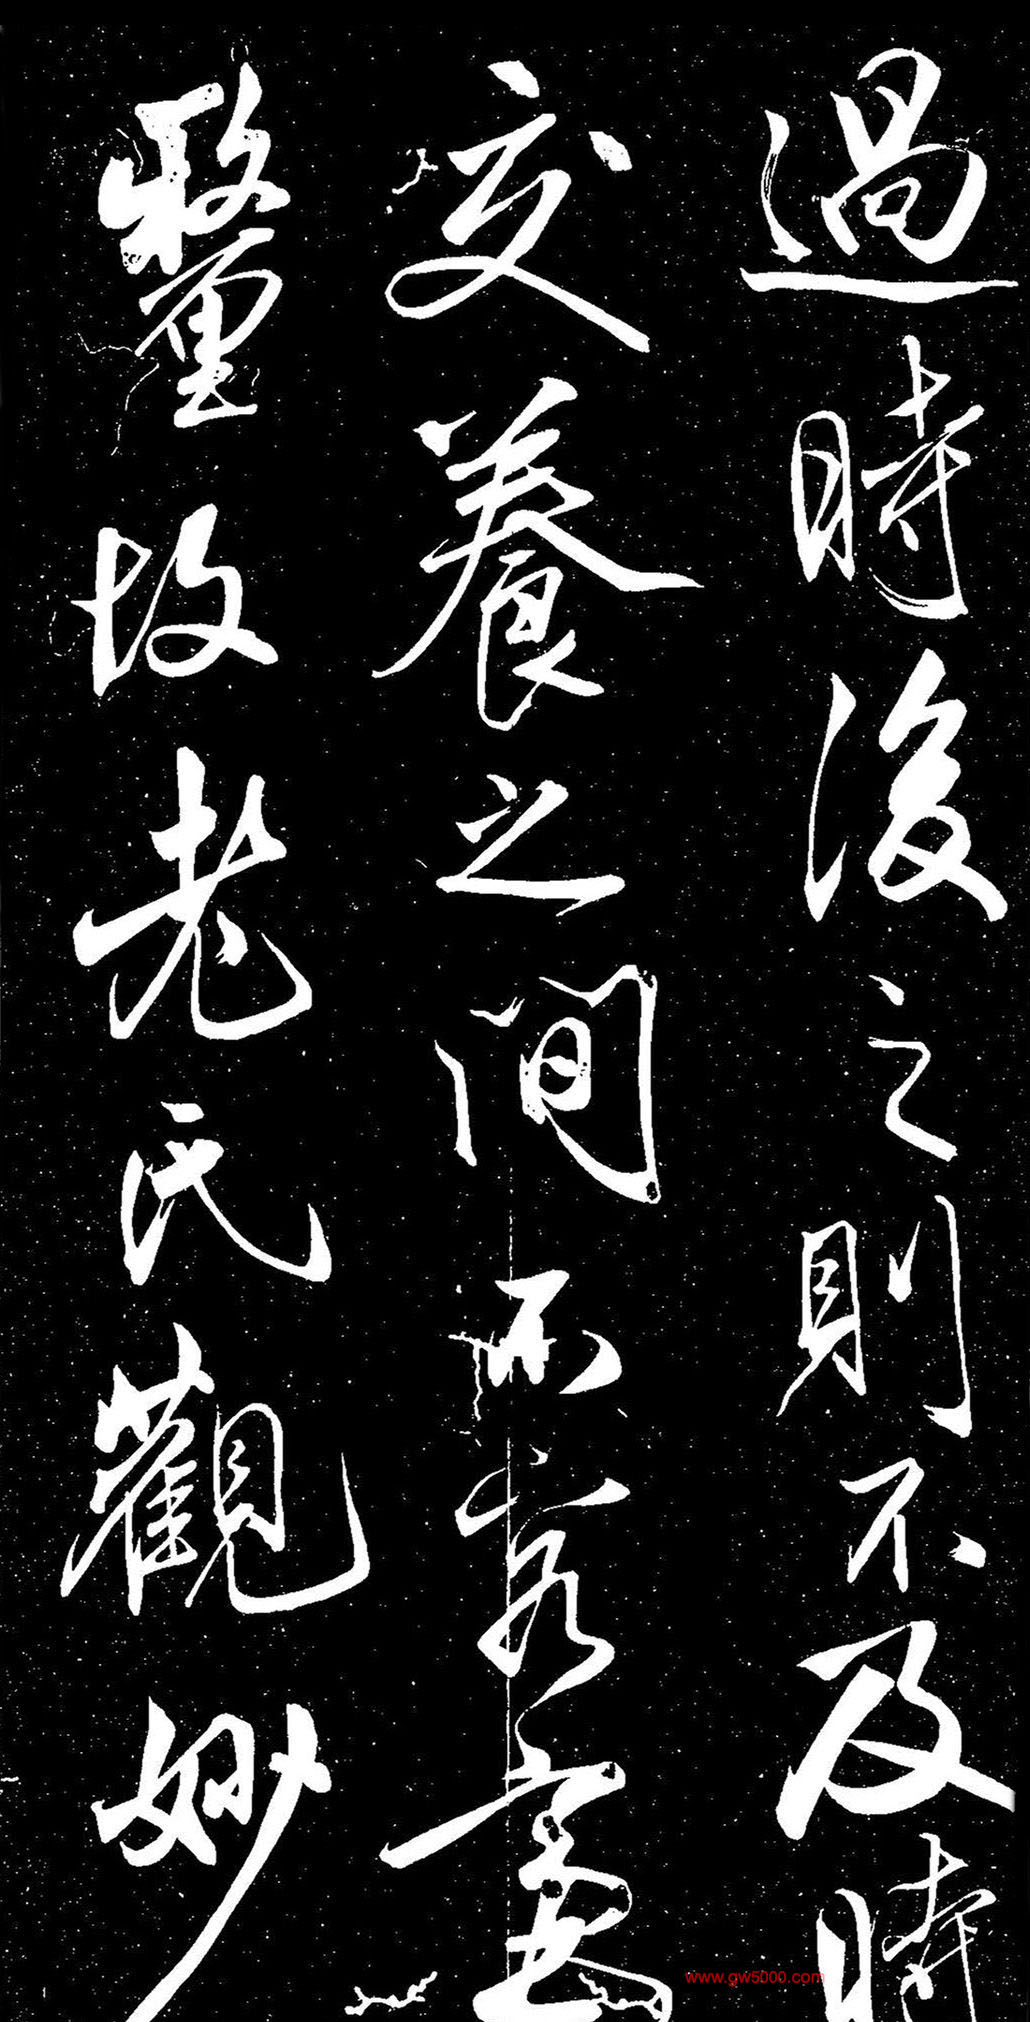 過時後之則不及時
交養之間不容毫
釐故老氏觀妙
www.gw5000.com